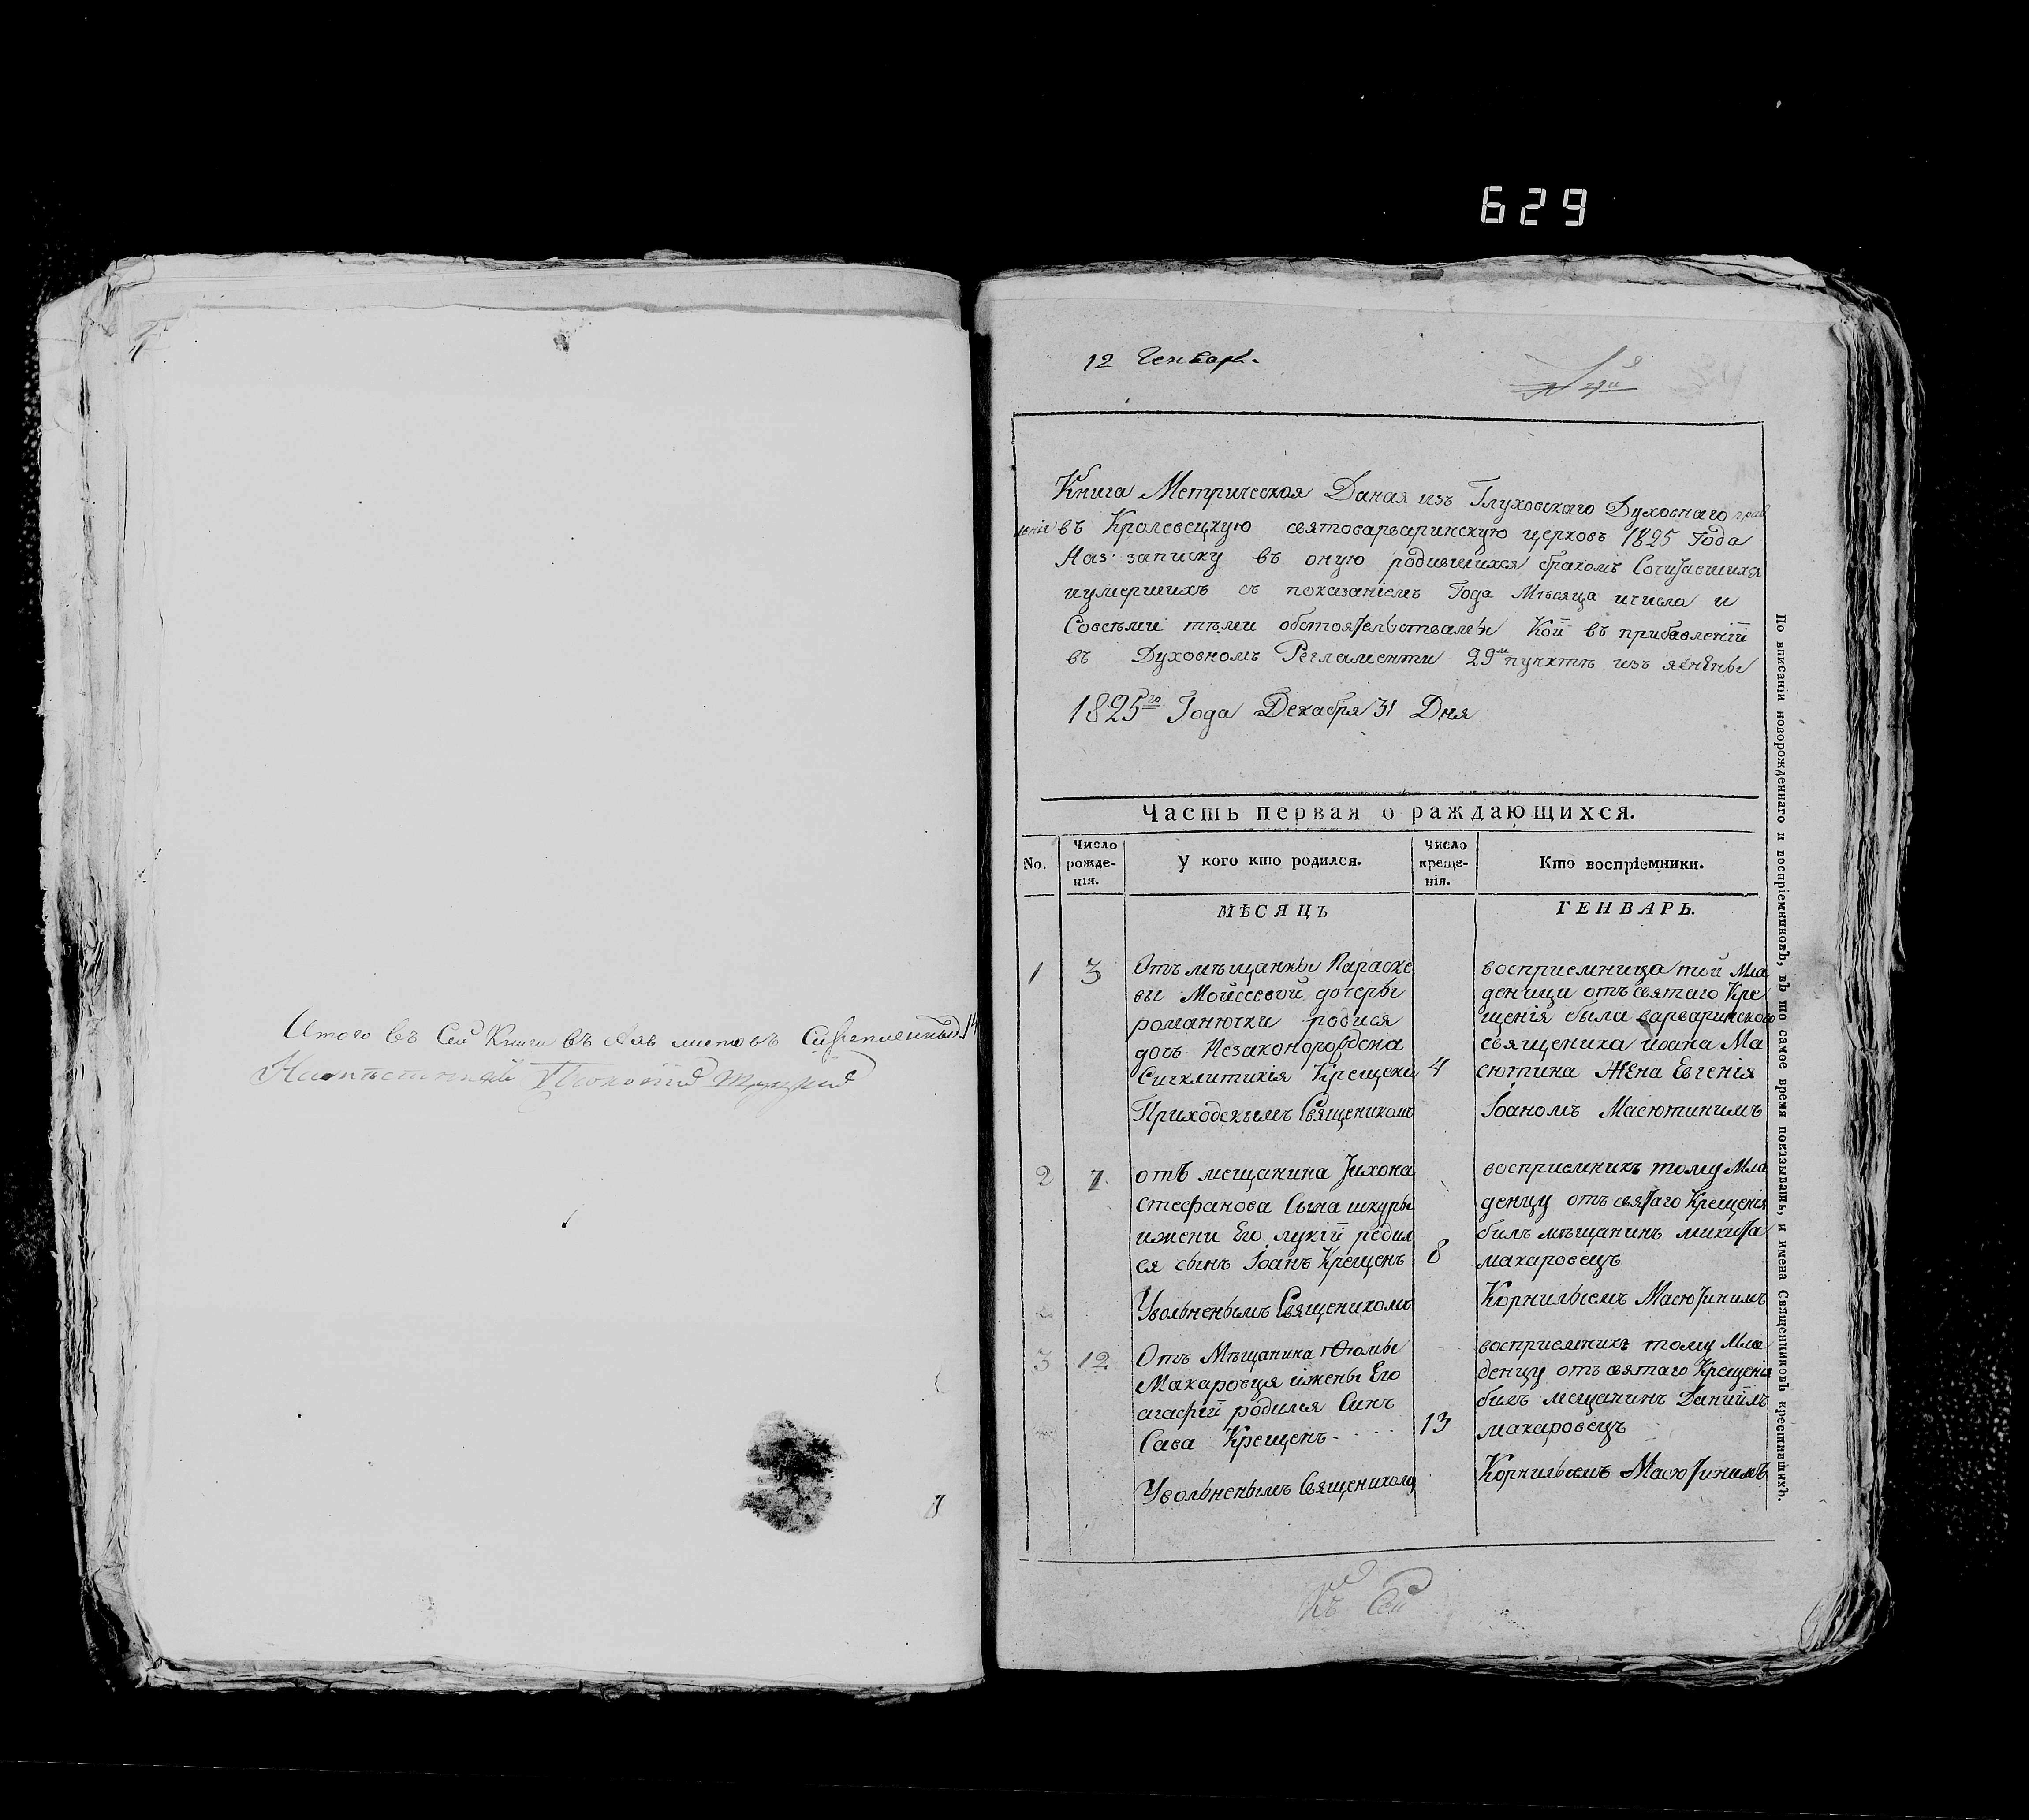 629
Итого въ Сей Книги въ листовъ
12 Генваря.
Книга Метрическая Даная изъ Глуховскаго Духовнаго прав
ленія въ Кролевецкую святоварваринскую церковъ 1825 Года
Наз записку въ оную родившихся бракомъ Сочитавшихся
иумершихъ съ показаніемъ Года Мѣсяца ичисла и
Совсѣми тѣми обстоятельствами Кои въ прибавленіи
въ Духовномъ Регламенти 29м пунктѣ изъ яснены
1825го Года Декабря 31 Дня
Часть первая о раждающихся.
No. Число рожденія. У кого кто родился. Число крещенія. Кто воспріемники.
МѢСЯЦЪ ГЕНВАРЬ.
1 3 Отъ мѣщанки Параске
вы Мойсеевой дочеры
романючки родися
дочь Незаконорождена
Сигклитикія Крещена 4
Приходскымъ Священикомъ
восприемница той мла
деници отъ святаго Кре
щенія была варваринского
священика иоана Ма
сютина Жена Евгенія
Іоаномъ Масютинимъ
2 7 отъ мещанина Тихона
Стефанова Сына шкуры
ижени Его лукіи родил
ся сынъ Іоанъ Крещенъ 8
Увольненымъ Священикомъ
восприемникъ тому Мла
денцу отъ святаго Крещенія
билъ мѣщанинъ микита
макаровецъ
Корнильемъ Масютинимъ
3 12 Отъ Мѣщанина Фомы
Макаровця ижены Его
агафіи родился Синъ
Сава Крещенъ 13
Увольненымъ Священикомъ
восприемникъ тому Мла
денцу отъ святаго Крещения
билъ мещанинъ Даниилъ
макаровецъ
Корнильемъ Масютинимъ
По вписаніи новорожденнаго и воспріемниковъ, въ то самое время показывать, и имена Священниковъ крестившихъ.
Къ Сей